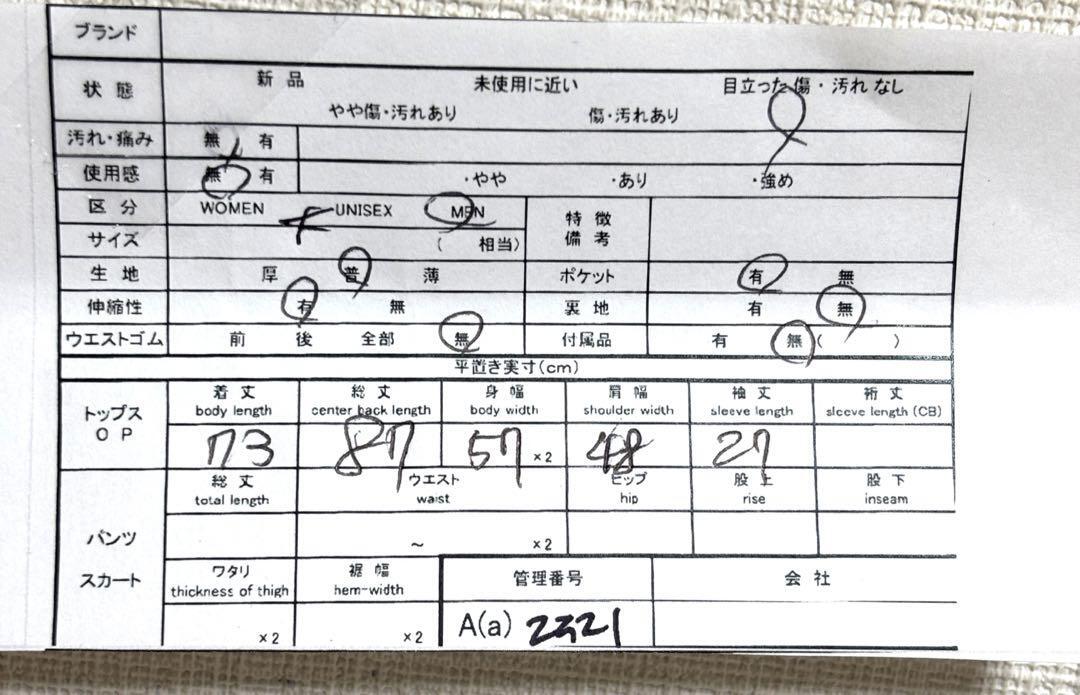 ブランド
状態 新品 未使用に近い 目立った傷・汚れなし
やや傷・汚れあり 傷・汚れあり
汚れ・痛み 無 有
使用感 無 有 ・やや ・あり ・強め
区分 WOMEN UNISEX MEN 特徴備考
サイズ ( 相当)
生地 厚 普 薄 ポケット 有 無
伸縮性 有 無 裏地 有 無
ウエストゴム 前 後 全部 無 付属品 有 無( )
平置き実寸(cm)
トップス OP 着丈 総丈 身幅 肩幅 袖丈 裄丈
body length center back length body width shoulder width sleeve length sleeve length (CB)
73 87 57 ×2 48 27
総丈 ウエスト ヒップ 股上 股下
total length waist hip rise inseam
パンツ ～ ×2
スカート ワタリ 裾幅 管理番号 会社
thickness of thigh hem-width
×2 ×2 A(a)